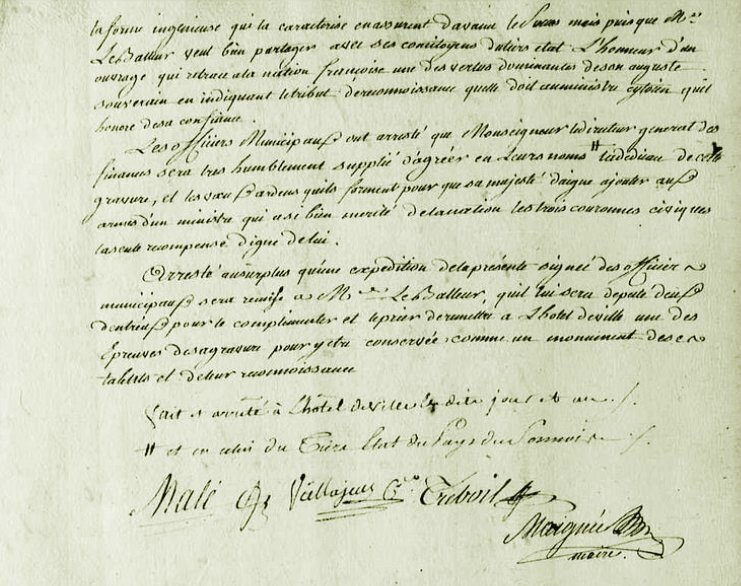 la forme ingenieuse qui la caracterise en assurent davance le Succes mais puisque Mr.
LeBatteur veut bien partager avec ses concitoyens du tiers état L'honneur d'un
ouvrage qui retrace a la nation francoise une des vertus dominantes de son auguste
souverain en indiquant le tribut de reconnoissance quelle doit au ministre cytoien quil
honore de sa confiance.
Les officiers Municipaux ont arresté que Monseigneur le directeur general des
finances sera tres humblement supplié d'agréer en Leurs noms # la dédicace de cette
gravure, et les vœux ardens quils forment pour que sa majesté daigne ajouter aux
armes d'un ministre qui a si bien merité de la nation les trois couronnes civiques
la seule recompense digne de lui.
Arresté au surplus qu'une expedition de la présente signée des officiers
municipaux sera remise a Mr. LeBatteur, quil lui sera deputé deux
d'entreux pour le complimenter et le prier de remettre a L'hotel de ville une des
Epreuves de sa gravure pour y etre conservée comme un monument de ses
talens et de leur reconnoissance
fait et arrêté à L'hôtel de ville les dits jour et an ./.
# et en celui du Tiers Etat du Pays du ./.
Malé Tréboil
Maignée
maire.